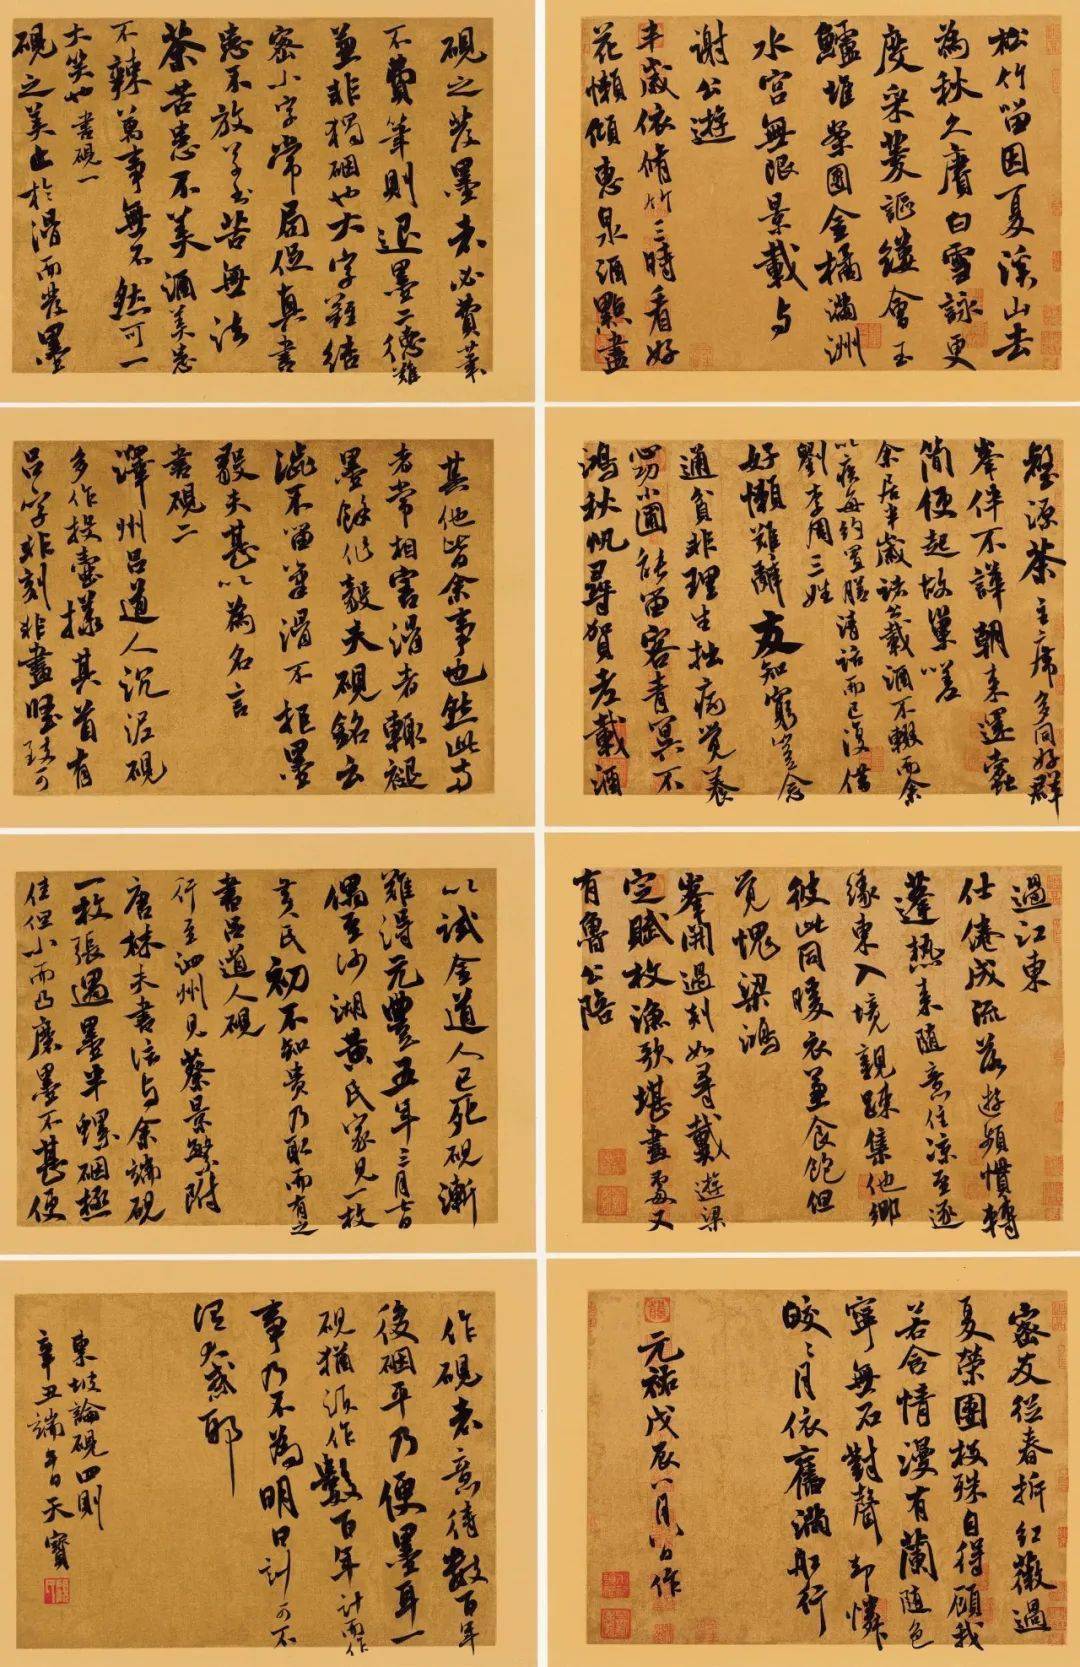 松竹留因夏溪山去
為秋久賡白雪詠更
度采菱謳縷會玉
鱸堆案團金橘滿洲
水宮無限景載與
謝公遊
半歲依脩竹三時看好
花懶傾惠泉酒點盡
壑源茶主席多同好群
峯伴不譁朝來還蠹
簡便起故巢嗟
余居半歲諸公載酒不輟而余
以疾每約置膳清話而已復借
劉李周三姓
好懶難辭友知窮豈念
通貧非理生拙病覺養
心功小圃能留客青冥不
鴻秋帆尋賀老載酒
過江東
仕倦成流落遊頻慣轉
蓬熱來隨意住涼至逐
緣東入境親疎集他鄉
彼此同暖衣兼食飽但
覺愧梁鴻
峯開過剡如尋戴遊梁
定賦枚漁歌堪畫處又
有魯公陪
密友從春拆紅薇過
夏榮團枝殊自得顧我
若含情漫有蘭隨色
寧無石對聲却憐
皎〻月依舊滿舡行
元祐戊辰八月八日作
硯之發墨者必費筆
不費筆則退墨二德難
兼非獨硯也大字難結
密小字常局促真書
患不放草書苦無法
茶苦患不美酒美患
不辣萬事無不然可一
大笑也書硯一
硯之美止於滑而發墨
其他皆余事也然此兩
者常相害滑者輒褪
墨餘作毅夫硯銘云
澀不留筆滑不拒墨
毅夫甚以為名言
書硯二
澤州呂道人沉泥硯
多作投壺樣其首有
呂字非刻非畫堅致可
以試金道人已死硯漸
難得元豐五年三月七日
偶至沙湖黃氏家見一枚
黃氏初不知貴乃取而有之
書呂道人硯
行至泗州見蔡景繁附
唐林夫書信與余端硯
一枚張遇墨半螺硯極
佳但小而凸磨墨不甚便
作硯者意待數百年
後硯平乃便墨耳一
硯猶須作數百年計而作
事乃不為明日計可不
謂大惑耶
東坡論硯四則
辛丑端午日天寶